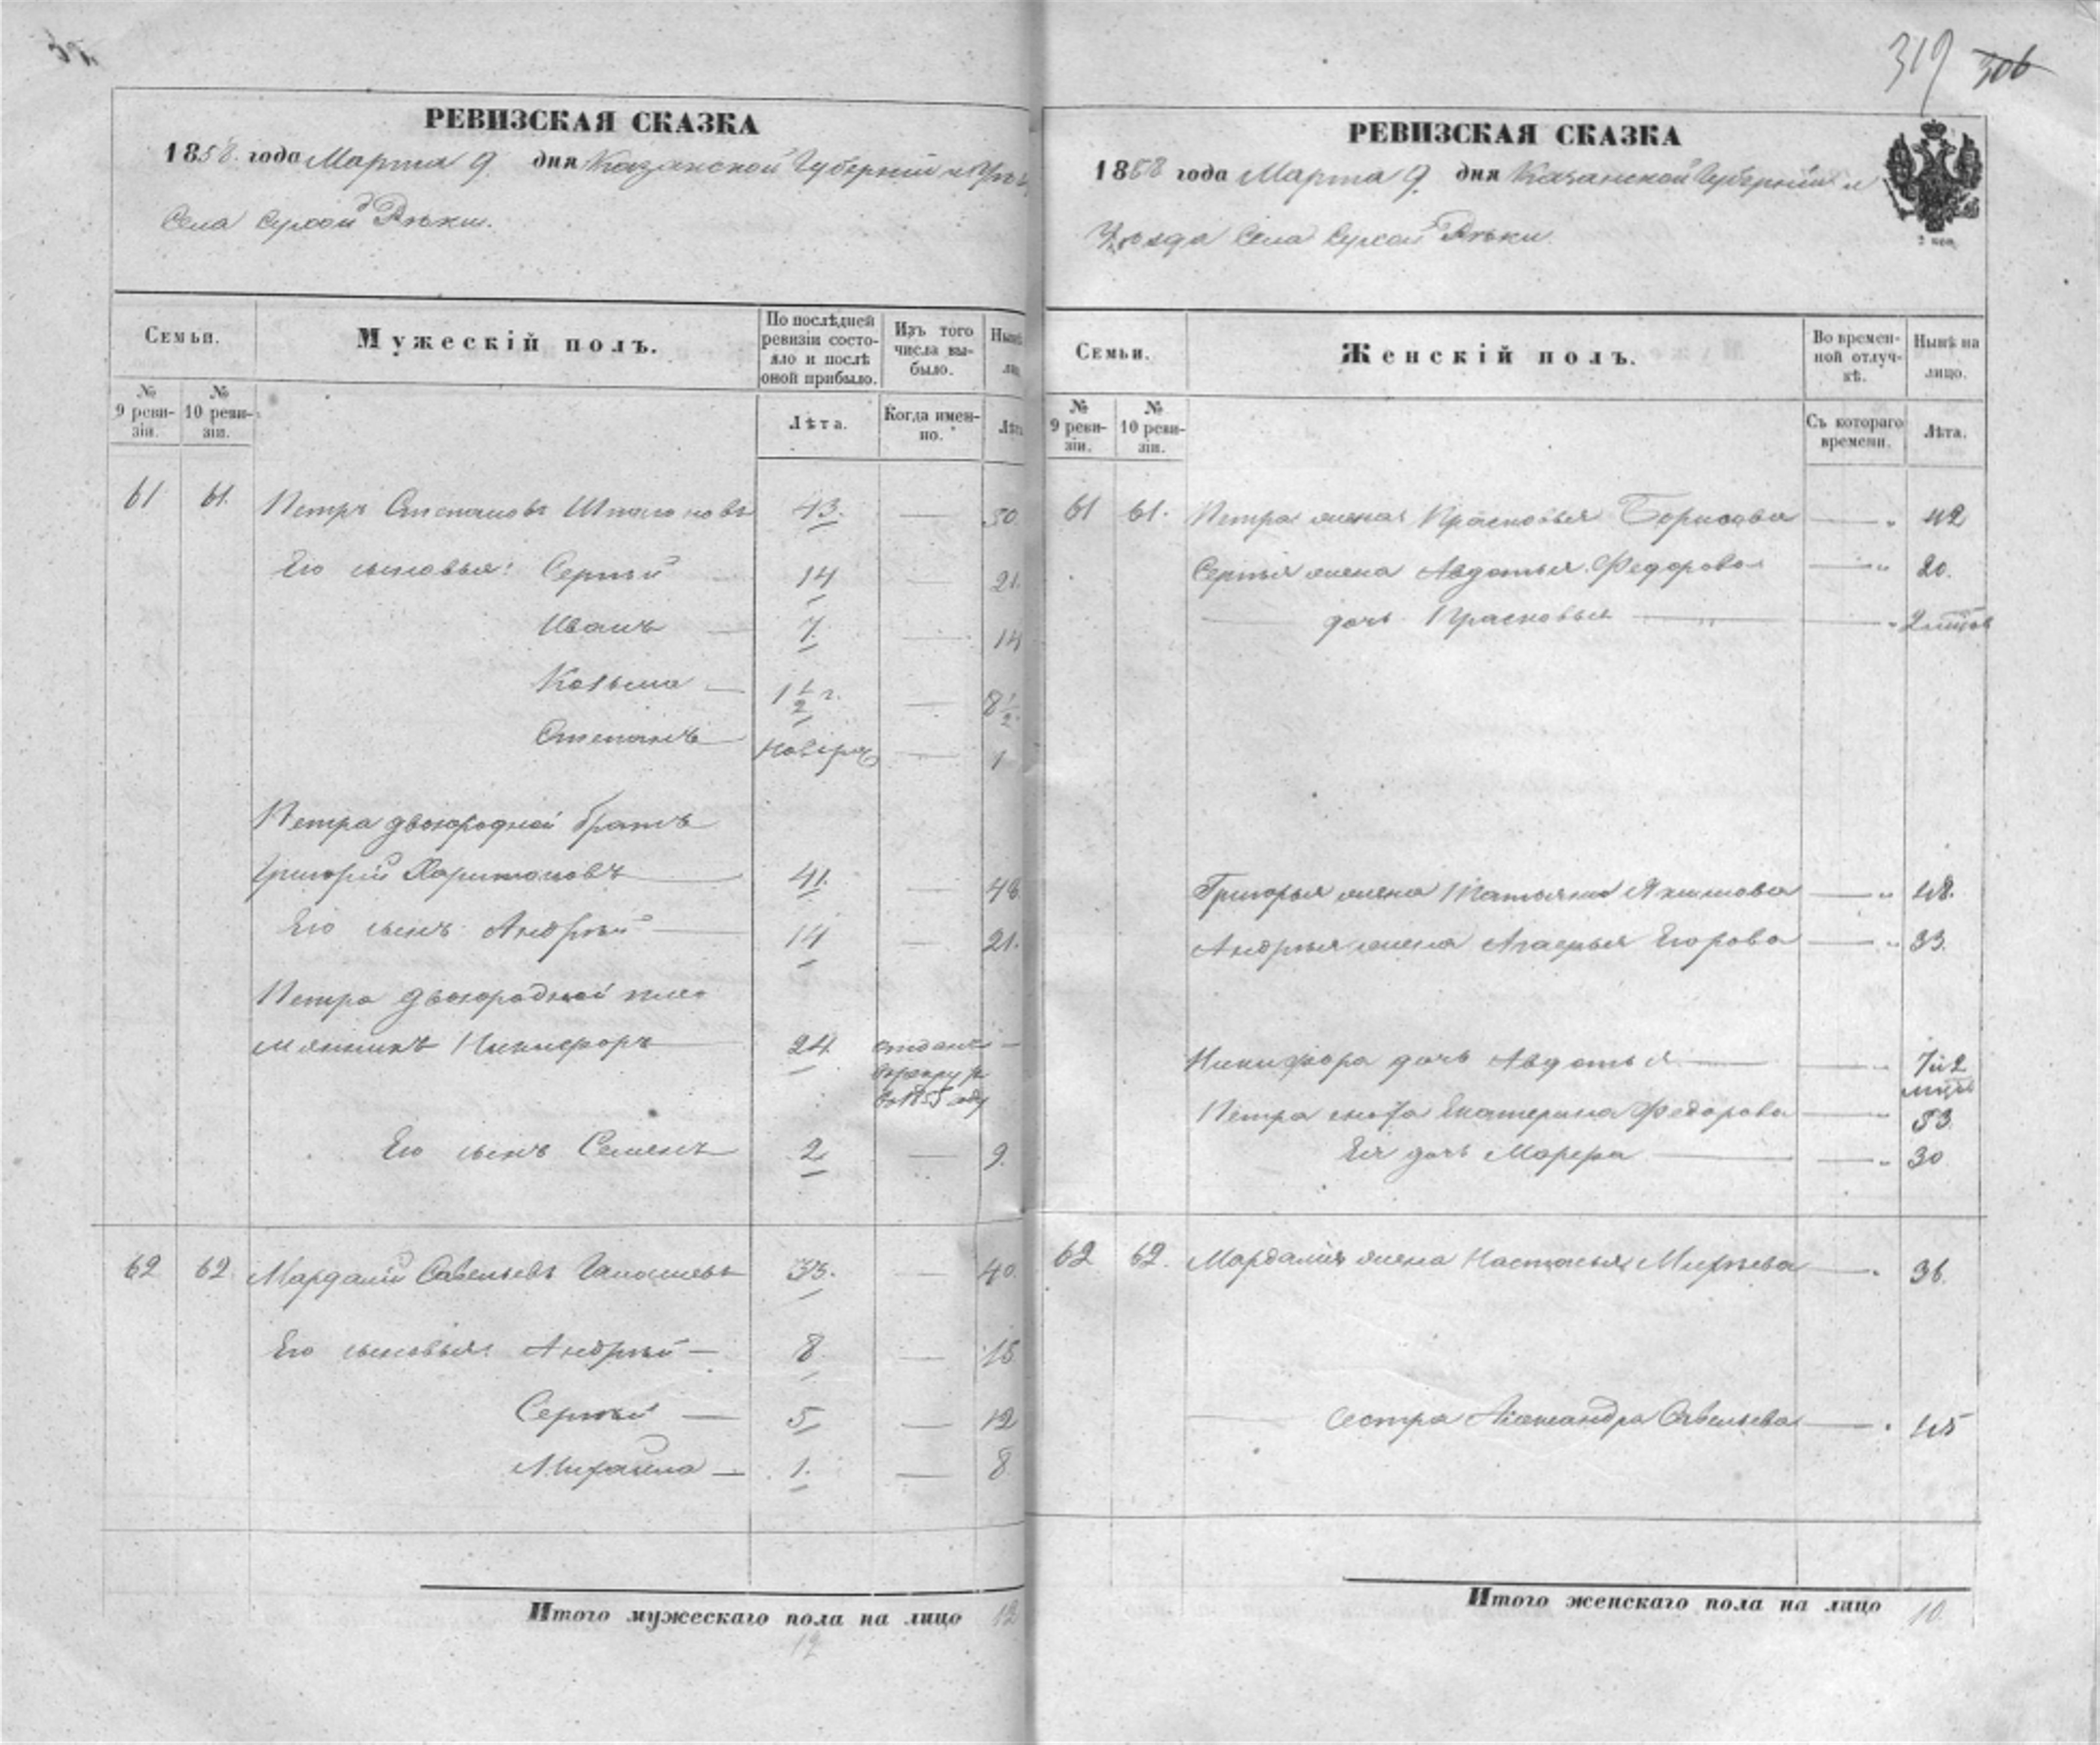 319 306
РЕВИЗСКАЯ СКАЗКА
1858. года Марта 9. дня Казанской Губерніи и Уѣз
Села Сухой Рѣки.
Семьи.
Мужескій полъ.
По послѣдней ревизіи состояло и послѣ оной прибыло.
Изъ того числа выбыло.
Нынѣ
№ 9 ревизіи.
№ 10 ревизіи.
Лѣта.
Когда именно.
Лѣта
61 61. Петръ Степановъ 43. — 50
Его сыновья: Сергѣй 14 — 21.
Иванъ — 7. — 14
Козьма — 1 1/2 г. — 8 1/2.
Степанъ — новорж — 1
Петра двоюродной братъ
Григорій Харитоновъ — 41. — 48
Его сынъ Андрѣй — 14 — 21.
Петра двоюродной пле
мянникъ Никифоръ — 24 отданъ —
в рекруты
в 1855 году
Его сынъ Семенъ 2 — 9.
62 62. Мардарій Савельевъ 33. — 40.
Его сыновья: Андрѣй — 8. — 15
Сергѣй — 5 — 12
Михайла — 1. — 8.
Итого мужескаго пола на лицо 12
12
РЕВИЗСКАЯ СКАЗКА
1858 года Марта 9. дня Казанской Губерніи и
Уѣзда Села Сухой Рѣки.
2 коп.
Семьи.
Женскій полъ.
Во временной отлучкѣ.
Нынѣ на лицо.
№ 9 ревизіи.
№ 10 ревизіи.
Съ котораго времени.
Лѣта.
61 61. Петра жена Прасковья Борисова — " 42
Сергѣя жена Авдотья Федорова — " 20.
дочь Прасковья — " — " 2 мѣсяцов
Григорья жена Татьяна Якимова — " 48.
Андрѣя жена Агафья Егорова — " 33.
Никифора дочь Авдотья — — " 7 и 2
мѣсяцов
Петра сноха Екатерина Федорова — " 53.
Ея дочь Марфа — — " 30
62 62. Мардарія жена Настасья — " 36.
сестра Александра Савельева — " 45
Итого женскаго пола на лицо 10.